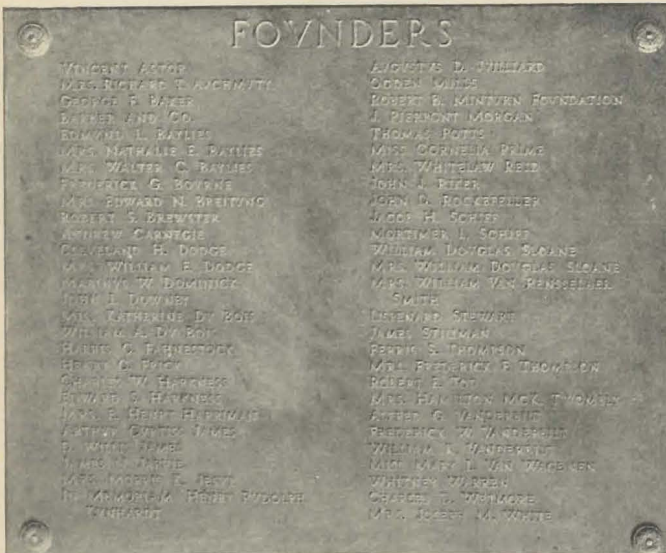 FOVNDERS
VINCENT ASTOR
MRS. RICHARD T. AVCHMVTY
GEORGE F. BAKER
BARBER AND CO.
EDMVND L. BAYLIES
MRS. NATHALIE E. BAYLIES
MRS. WALTER C. BAYLIES
FREDERICK G. BOVRNE
MRS. EDWARD N. BREITVNG
ROBERT S. BREWSTER
ANDREW CARNEGIE
CLEVELAND H. DODGE
MRS. WILLIAM E. DODGE
MARINVS W. DOMINICK
JOHN I. DOWNEY
MRS. KATHERINE DV BOIS
WILLIAM A. DV BOIS
HARRIS C. FAHNESTOCK
HENRY C. FRICK
CHARLES W. HARKNESS
EDWARD S. HARKNESS
MRS. E. HENRY HARRIMAN
ARTHVR CVRTISS JAMES
D. WILLIS JAMES
JAMES N. JARVIE
MRS. MORRIS K. JESVP
IN MEMORIAM HENRY RVDOLPH
KVNHARDT
AVGVSTVS D. JVILLIARD
OGDEN MILLS
ROBERT B. MINTVRN FOVNDATION
J. PIERPONT MORGAN
THOMAS POTTS
MISS CORNELIA PRIME
MRS. WHITELAW REID
JOHN J. RIKER
JOHN D. ROCKEFELLER
JACOB H. SCHIFF
MORTIMER L. SCHIFF
WILLIAM DOVGLAS SLOANE
MRS. WILLIAM DOVGLAS SLOANE
MRS. WILLIAM VAN RENSSELAER
SMITH
LISPENARD STEWART
JAMES STILLMAN
FERRIS S. THOMPSON
MRS. FREDERICK F. THOMPSON
ROBERT E. TOD
MRS. HAMILTON MCK. TWOMBLY
ALFRED G. VANDERBILT
FREDERICK W. VANDERBILT
WILLIAM K. VANDERBILT
MISS MARY L. VAN WAGENEN
WHITNEY WARREN
CHARLES D. WETMORE
MRS. JOSEPH M. WHITE